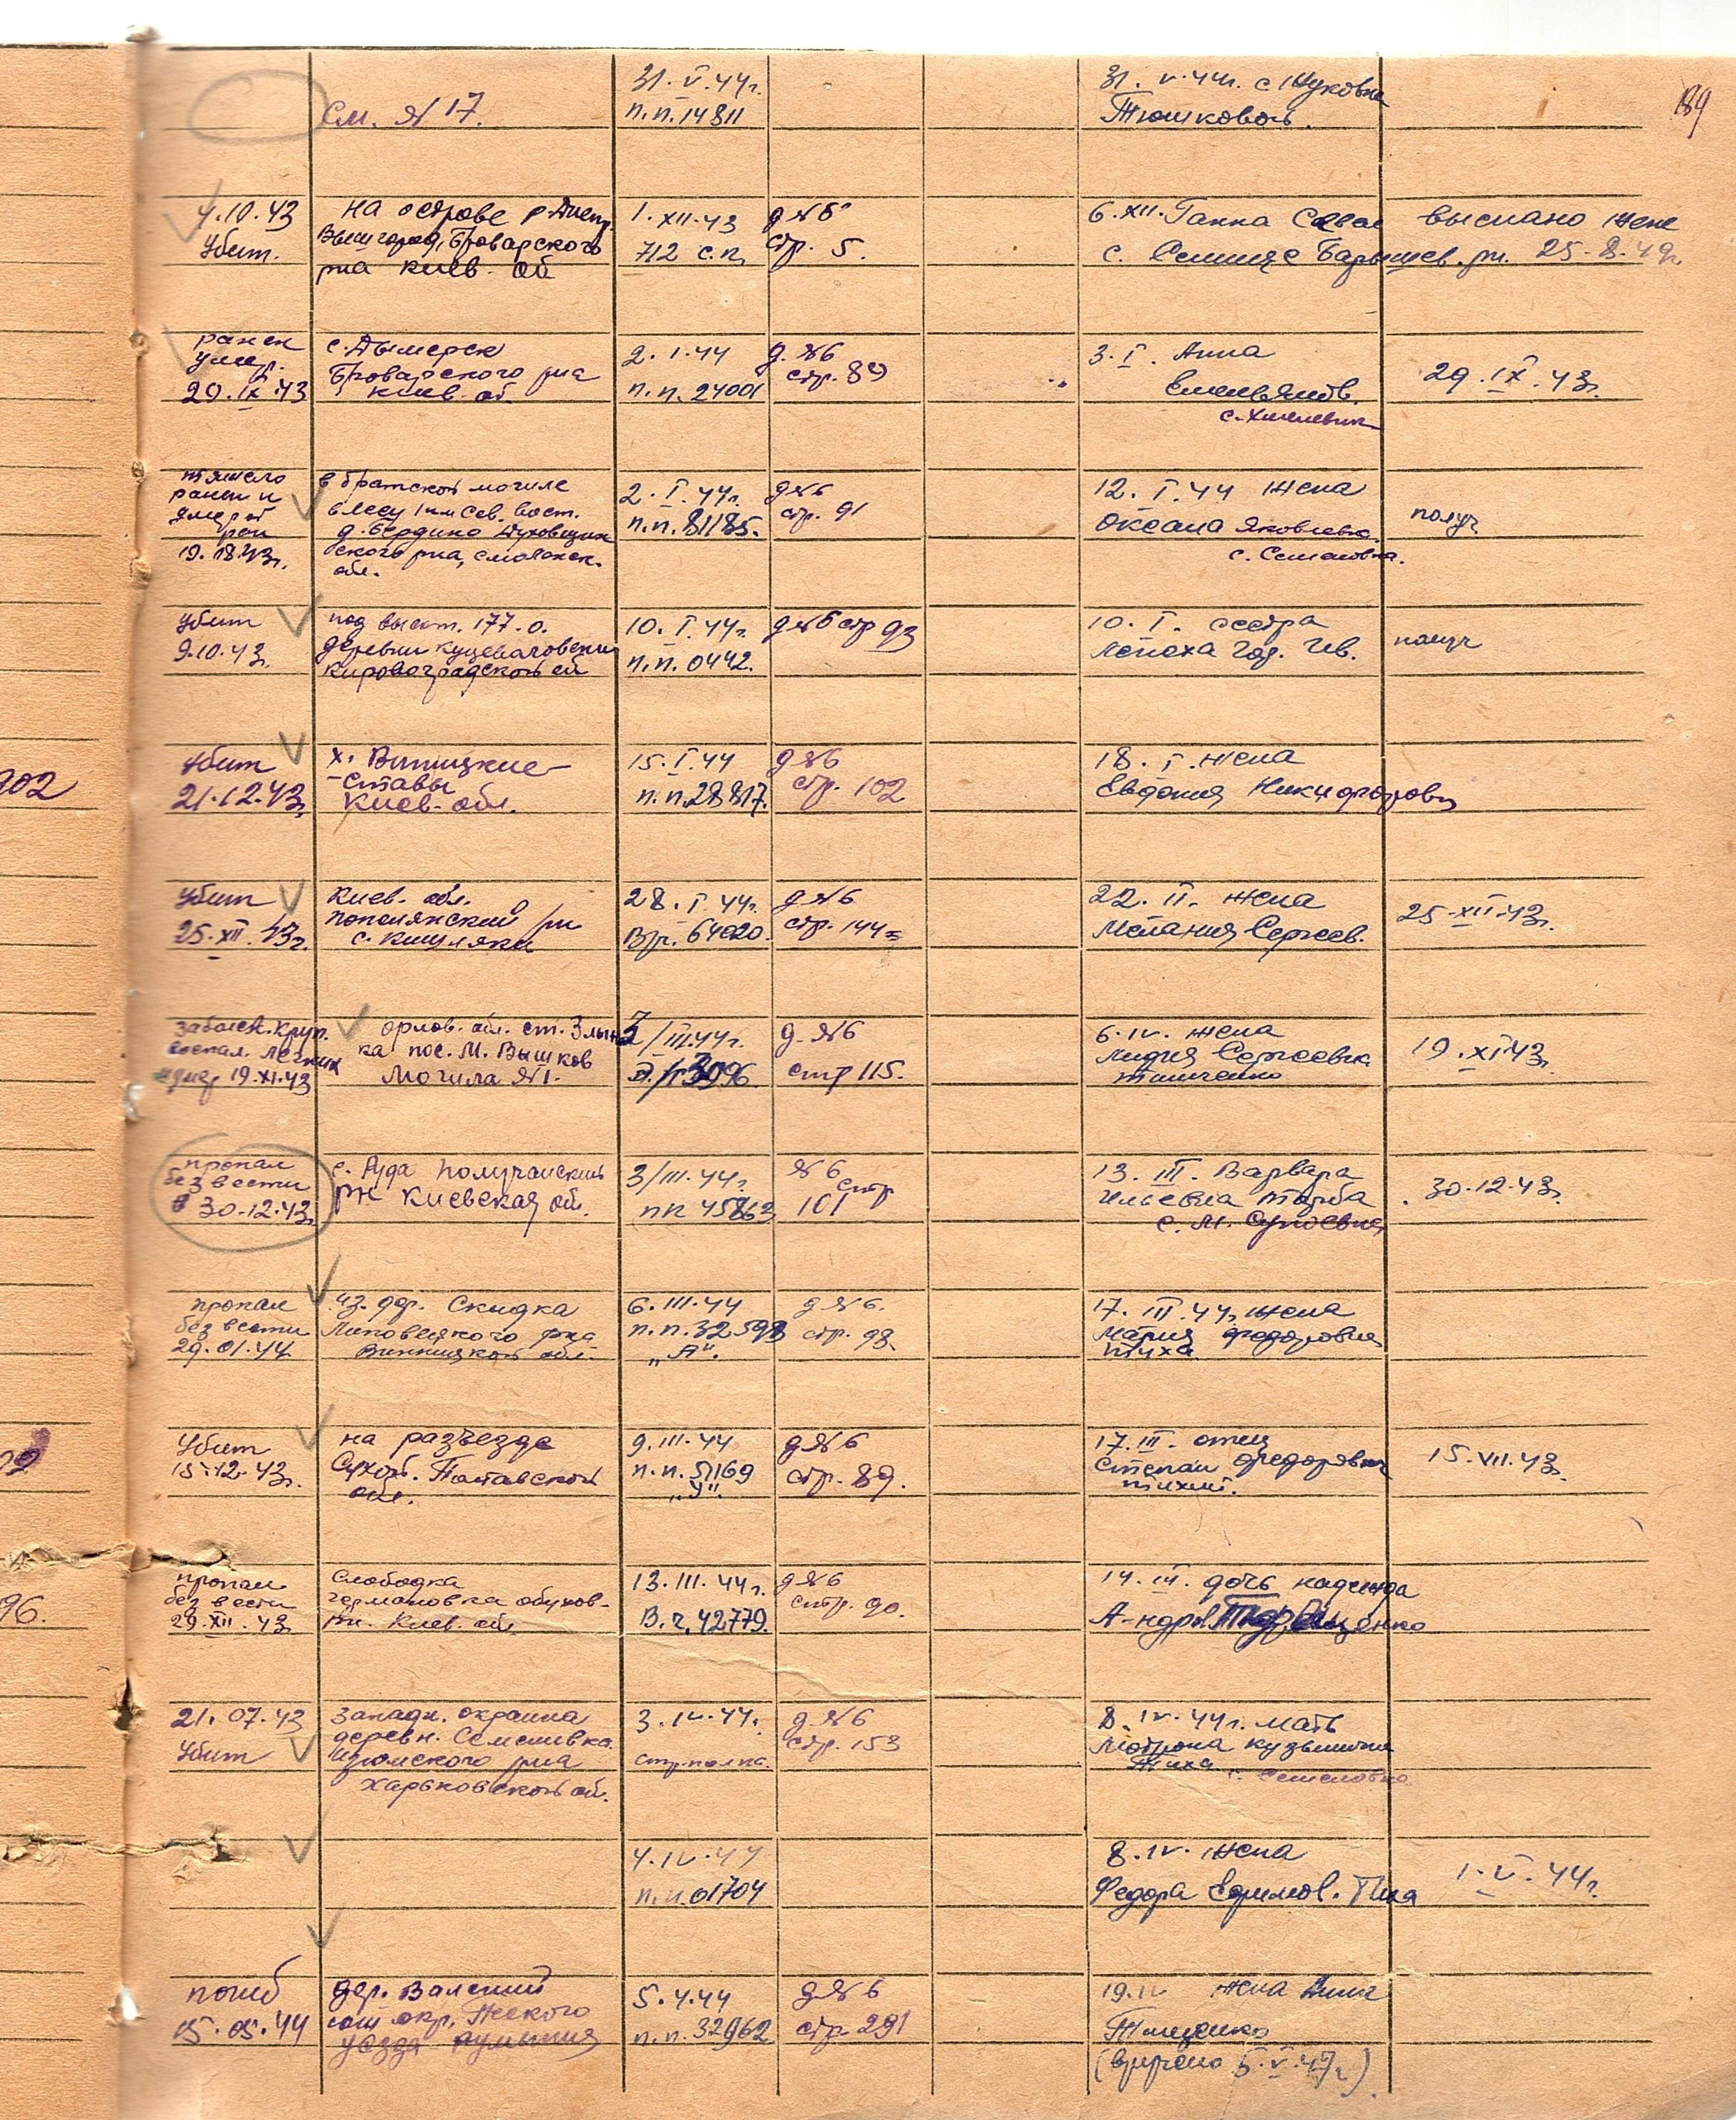 189
См. №17.
31.V.44г.
п.п.14811
31.V.44г. с. Жуковка
Тюшковой.
4.10.43
Убит.
на острове р. Днепр
Вышгород, Броварского
р-на Киев. об
1.XII.43
712 с.п.
д №6
стр. 5.
6.XII. Ганна Савел
с. Барышев. р-н.
выслано жене
25.8.49г.
ранен
умер.
29.IX.43
с. Дымерск
Броварского р-на
Киев. об.
2.I.44
п.п.24001
д. №6
стр. 89
3.I. Анна
Емельянов.
29.IX.43г.
тяжело
ранен и
умер от
ран
в братской могиле
в лесу 1 км сев. вост.
д. Бердино Духовщин
ского р-на, смоленск.
обл.
2.I.44г.
п.п.81185.
д №6
стр. 91
12.I.44 жена
Оксана Яковлевна.
с. Семеновка.
получ
убит
9.10.43г.
под высот. 177.0.
деревни Куцеваловский
Кировоградской об
10.I.44г.
п.п.0442.
д №6 стр 93
10.I. сестра
получ
Убит
21.12.43г.
х. Винницкие
Ставы
Киев. обл.
15.I.44
п.п.28817.
д №6
стр. 102
18.I. жена
Евдокия Никифоровн
Убит
25.XII.43г.
Киев. обл.
Попелянский р-н
28.I.44г.
В/ч. 64020.
д №6
стр. 144
22.II. жена
Мелания Сергеев.
25.XII.43г.
заболев. круп.
воспал. легких
умер 19.XI.43
орлов. обл. ст. Злын
ка пос. М. Вышков
Могила №1.
2/III.44г.
п/п 3096
д. №6
стр 115.
6.IV. жена
Лидия Сергеевна
Тимченко
19.XI.43г.
пропал
без вести
30.12.43г.
с. Руда
р-н Киевская об.
3/III.44г.
пп 45863
№6
стр
101
13.III. Варвара
Ильевна
30.12.43г.
пропал
без вести
29.01.44
из. дер. Скидка
Липовецкого р-на
Винницкой обл.
6.III.44
п.п.32598
„А".
д №6.
стр. 98.
17.III.44г. жена
Мария Федоровна
Тиха
Убит
15.12.43г.
на разъезде
Сухой. Полтавской
обл.
9.III.44
п.п.51169
„У".
д №6
стр. 89.
17.III. отец
Степан Федорович
Тихий.
15.VII.43г.
пропал
без вести
29.XII.43
Слободка
Германовка обухов-
р-н. Киев. об.
13.III.44г.
В.ч.42779.
д №6
стр. 90.
14.III. дочь надежда
21.07.43
Убит
Западн. окраина
деревн. Семеновка
Изюмского р-на
Харьковской об.
3.IV.44.
д №6
стр. 153
8.IV.44г. мать
Мотрона кузьминична
Тиха с. Семеновка
4.IV.44
п.п.01704
8.IV. жена
Федора Ефимов. Тиха
1.V.44г.
погиб
05.05.44
дер.
уезда Румыния
5.4.44
п.п.32962
д №6
стр 291
19.IV жена Анна
Тищенко
(вручено 5.V.47г)
902
96.